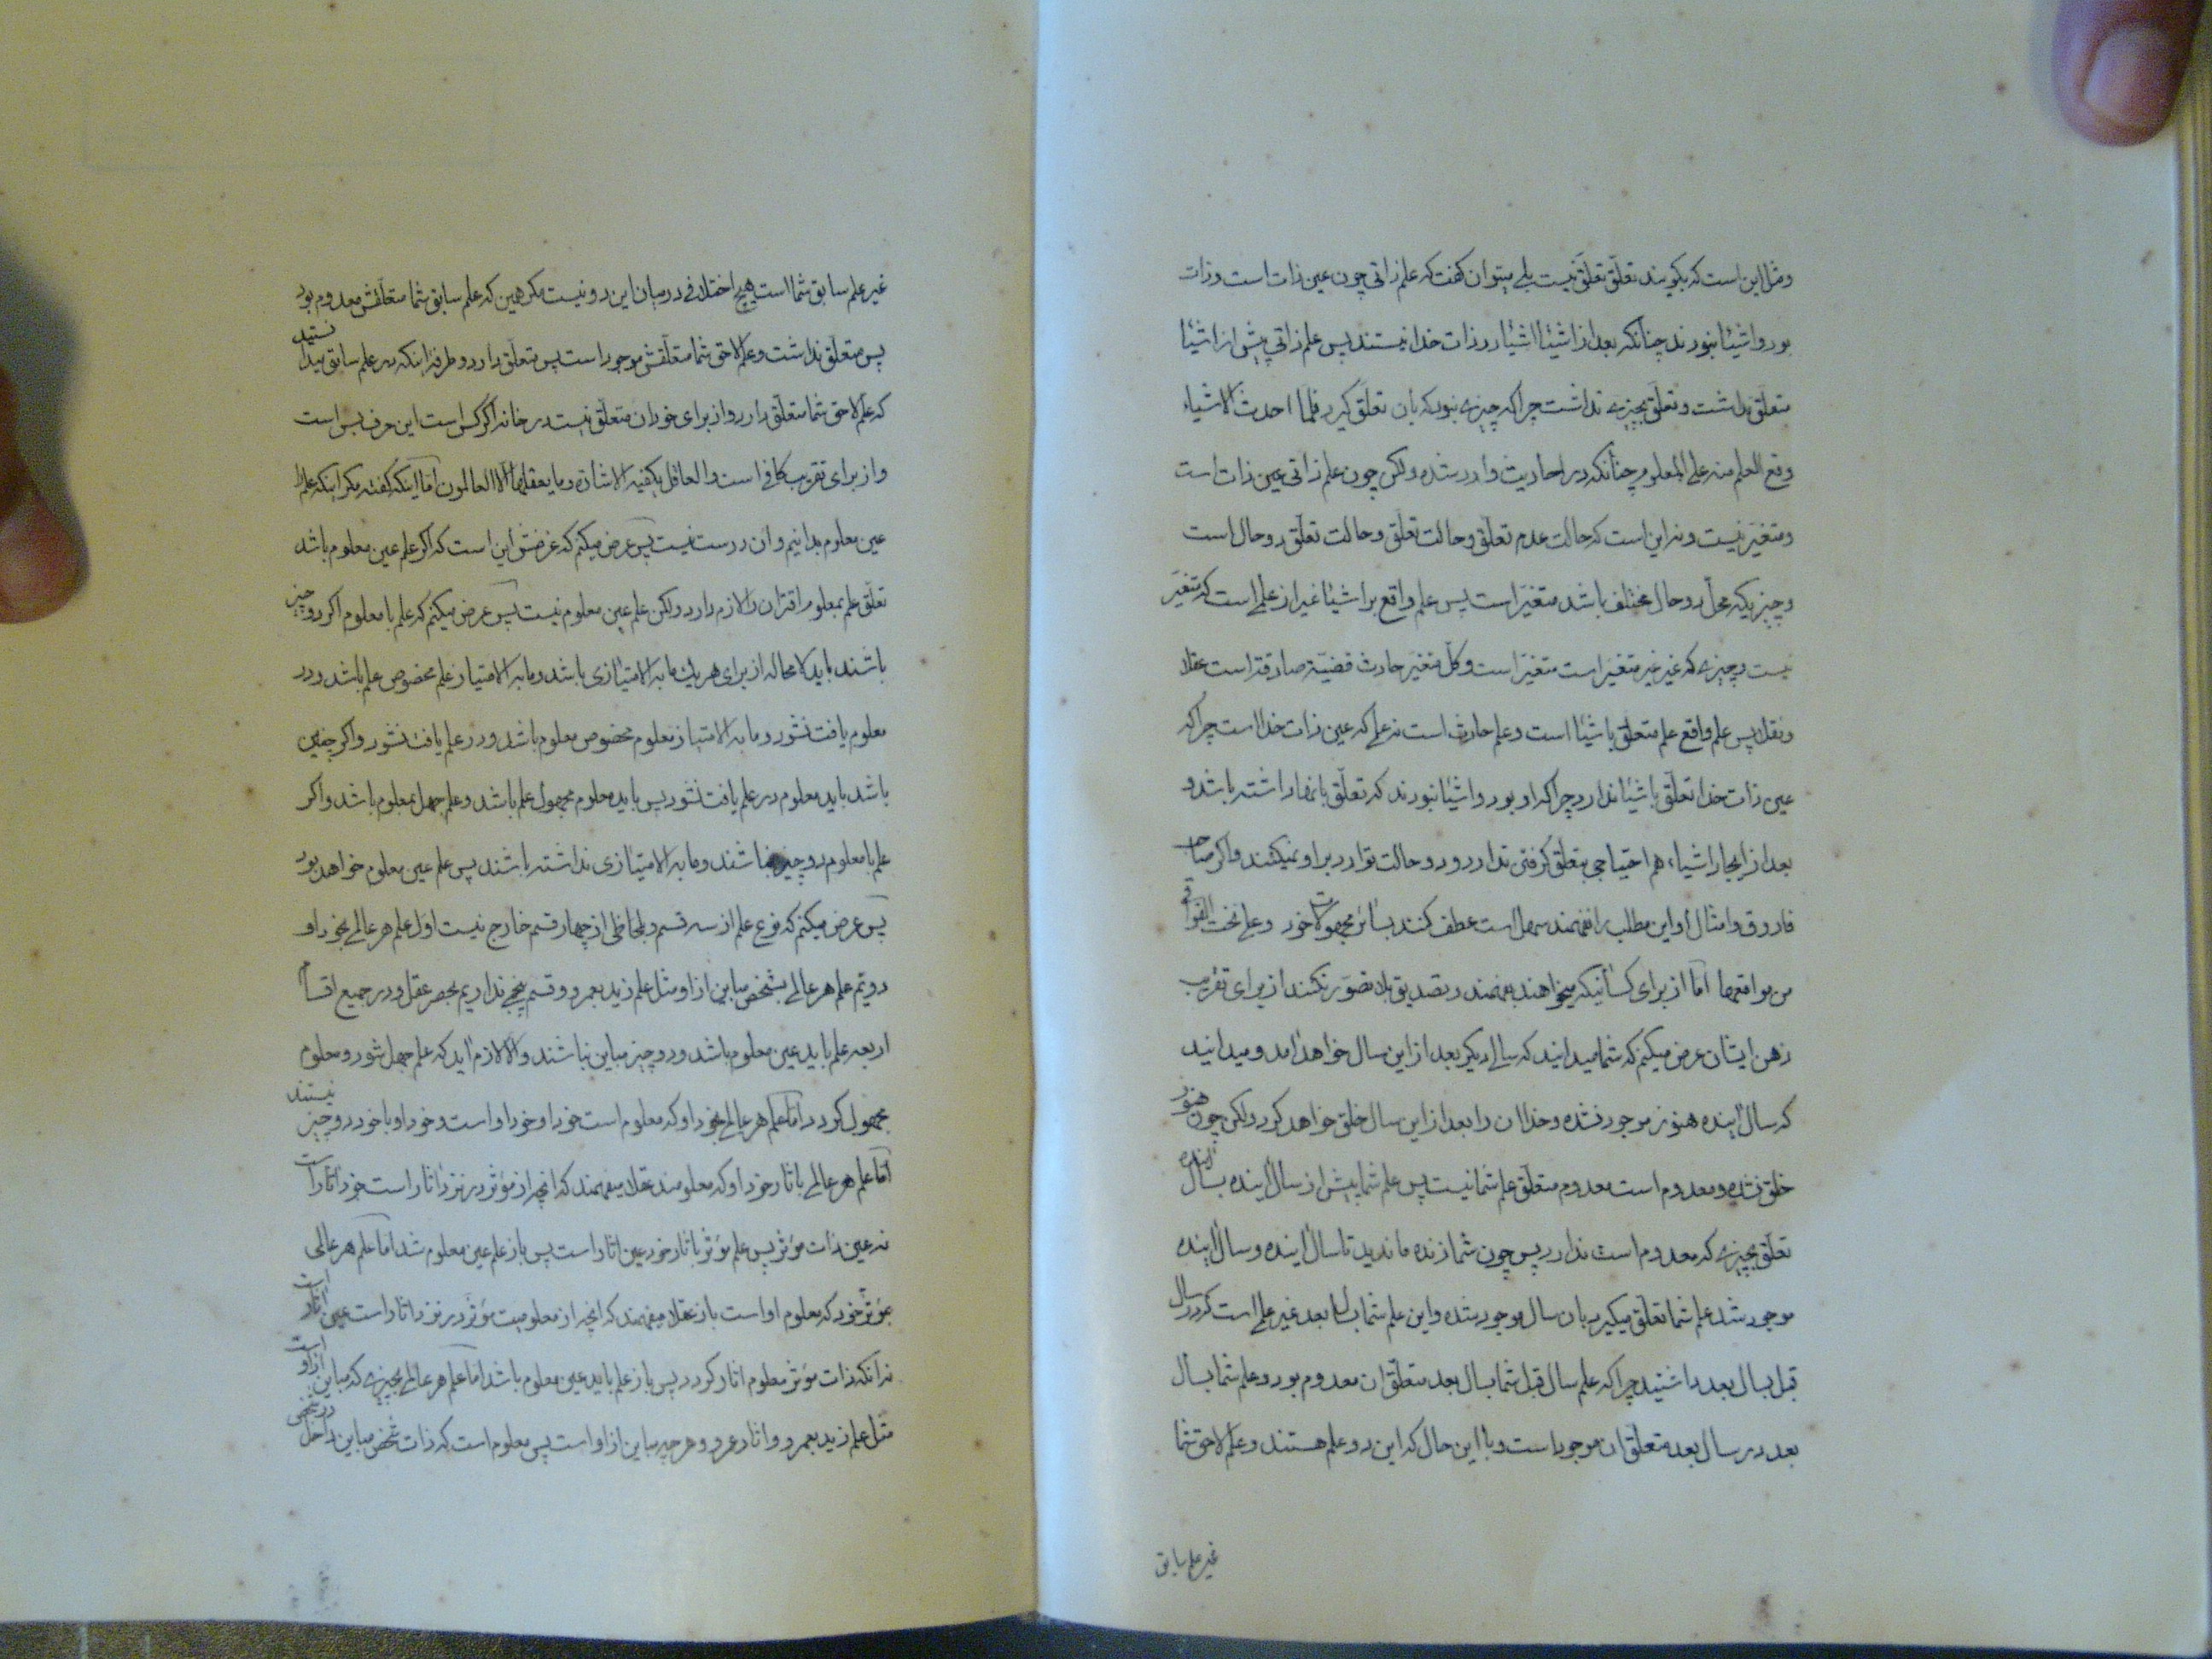 ومثل این است که بگویند تعلّق تعلّق نیست بلی میتوان گفت که علم ذاتی چون عین ذات است و ذات
بود و اشیٰا نبودند چنانکه بعد از اشیٰا اشیٰا در ذات خدا نیستند پس علم ذاتی پیش از اشیٰا
متعلّق نداشت و تعلّق بچیزی نداشت چرا که چیزی نبود که بآن تعلّق گیرد فلما احدث الاشیاء
وقع العلم منه علی المعلوم چنانکه در احادیث وارد شده ولکن چون علم ذاتی عین ذات است
و متغیّر نیست و نه این است که حالت عدم تعلّق و حالت تعلّق و حالت تعلّق دو حال است
و چیزیکه محل دو حال مختلف باشد متغیّر است پس علم واقع بر اشیٰا غیر از علمی است که متغیّر
نیست و چیزی که غیر غیر متغیّر است متغیّر است و کلّ متغیّر حادث قضیّه صادقه است عقلا
و نقلا پس علم واقع علم متعلّق باشیٰا است و علم حادث است نه علمی که عین ذات خدا است چرا که
عین ذات خدا تعلّق باشیٰا ندارد چرا که او بود و اشیٰا نبودند که تعلّق بانها داشته باشد و
بعد از ایجاد اشیاء هم احتیاجی بتعلّق گرفتن ندارد و دو حالت توارد بر او نمیکنند و اگر صاحب
فاروق و امثال او این مطلب را نفهمند سهل است عطف کنند بسائر مجهولات خود و علی نحت القوافی
من مواقعها امّا از برای کسانیکه میخواهند بفهمند و تصدیق بلا تصوّر نکنند از برای تقریب
ذهن ایشان عرض میکنم که شما میدانید که سالی دیگر بعد از این سال خواهد آمد و میدانید
که سال آینده هنوز موجود نشده و خدا آن را بعد از این سال خلق خواهد کرد ولکن چون هنوز
خلق نشده و معدوم است معدوم متعلّق علم شما نیست پس علم شما پیش از سال آینده بسال آینده
تعلّق بچیزی که معدوم است ندارد پس چون شما زنده ماندید تا سال آینده و سال آینده
موجود شد علم شما تعلّق میگیرد بآن سال موجود شده و این علم شما بسال بعد غیر علمی است که در سال
قبل بسال بعد داشتید چرا که علم سال قبل شما بسال بعد متعلّق آن معدوم بود و علم شما بسال
بعد در سال بعد متعلّق آن موجود است و با این حال که این دو علم هستند و علم لاحق شما
غیر علم سابق
غیر علم سابق شما است هیچ اختلافی در میان این دو نیست مگر همین که علم سابق شما متعلّقش معدوم بود
پس متعلّق نداشت و علم لاحق شما متعلّقش موجود است پس متعلّق دارد و طرفه اینکه در علم سابق میدانستید
که علم لاحق شما متعلّق دارد و از برای خود آن متعلّق نیست در خانه اگر کس است این حرف بس است
و از برای تقریب کافی است و العاقل یکفیه الاشارة و ما یعقلها الّا العالمون امّا اینکه گفته مگر اینکه علم را
عین معلوم بدانیم و آن درست نیست پس عرض میکنم که غرضش این است که اگر علم عین معلوم باشد
تعلّق علم بمعلوم اقتران را لازم دارد ولکن علم عین معلوم نیست پس عرض میکنم که علم با معلوم اگر دو چیز
باشند باید لا محاله از برای هر یک ما به الامتیازی باشد و ما به الامتیاز علم مخصوص علم باشد و در
معلوم یافت نشود و ما به الامتیاز معلوم مخصوص معلوم باشد و در علم یافت نشود و اگر چنین
باشد باید معلوم در علم یافت نشود پس باید معلوم مجهول علم باشد و علم جهل بمعلوم باشد و اگر
علم با معلوم دو چیز نباشند و ما به الامتیازی نداشته باشند پس علم عین معلوم خواهد بود
پس عرض میکنم که فوع علم از سه قسم و بلحاظی از چهار قسم خارج نیست اوّل علم هر عالمی بخود او
دویّم علم هر عالمی بشخص مباین از او مثل علم زید بعمرو و قسم پنجمی نداریم بحصر عقل و در جمیع اقسام
اربعه علم باید عین معلوم باشد و دو چیز مباین نباشند و الّا لازم آید که علم جهل شود و معلوم
مجهول گردد امّا علم هر عالمی بخود او که معلوم است خود او خود او است و خود او با خود دو چیز نیستند
امّا علم هر عالمی باثار خود او که معلومند عقلا میفهمند که آنچه از مؤثر در نزد اثار است خود اثار است
نه عین ذات مؤثر پس علم مؤثر باثار خود عین اثار است پس باز علم عین معلوم شد امّا علم هر عالمی
بمؤثر خود که معلوم او است باز عقلا میفهمند که آنچه از معلومیت مؤثر در نزد اثار است عین اثار است
نه آنکه ذات مؤثر معلوم اثار گردد پس باز علم باید عین معلوم باشد امّا علم هر عالمی بچیزی که مباین از او است
مثل علم زید بعمرو و اثار عمرو و هر چه مباین از او است پس معلوم است که ذات شخص مباین داخل در شخص